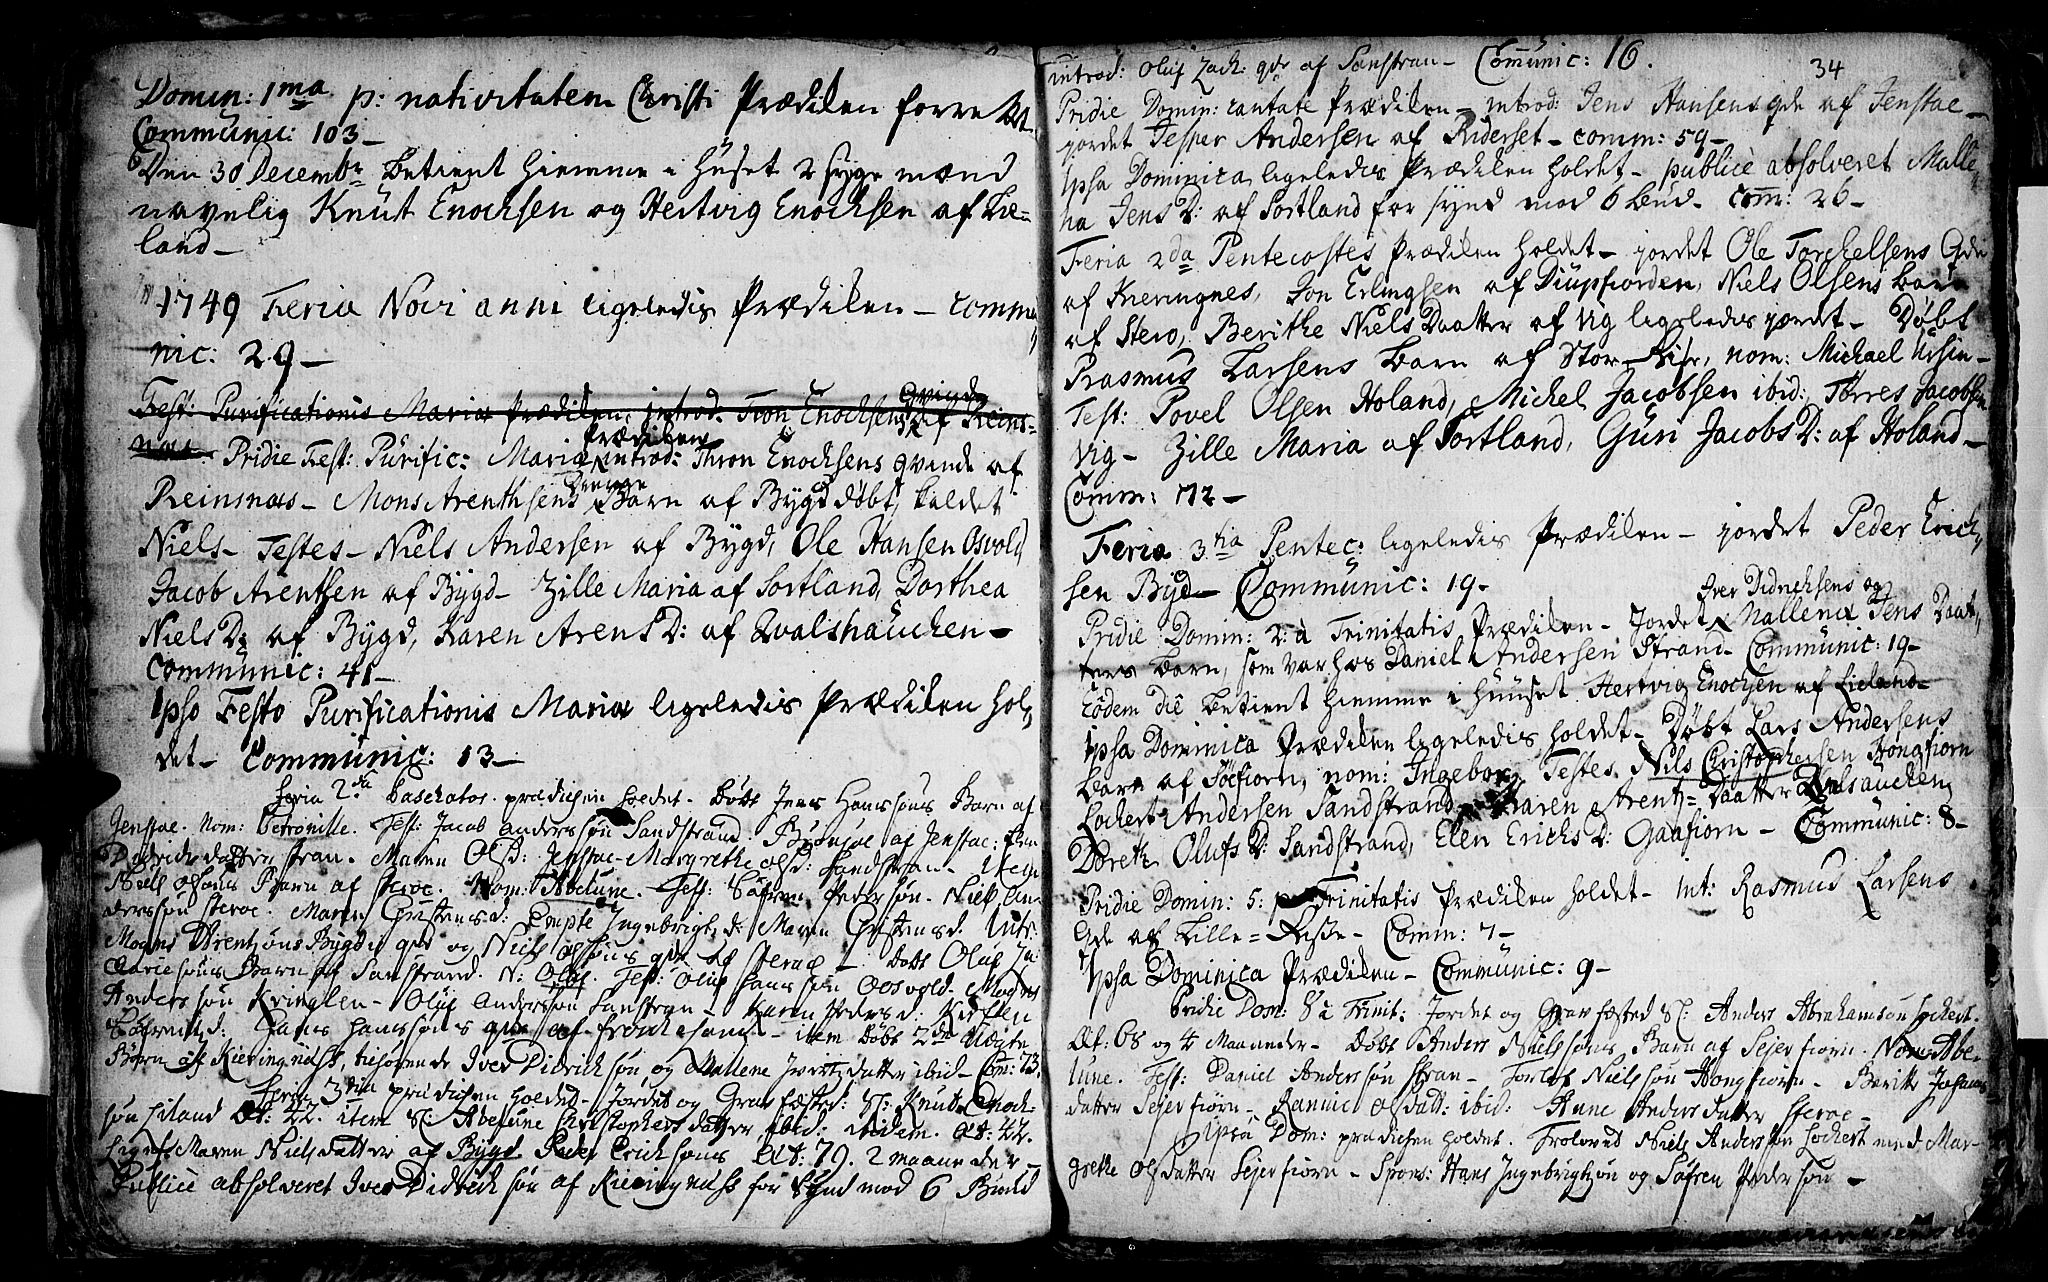 Domin: 1ma p: nativitatem Christi Prædiken forrettet
Communic: 103 –
Den 30 Decembr betient hiemme i Huset 2 syge mænd
navnlig Knut Enochsen og Hertvig Enochsen af Lie-
land –
1749 Feria Novi anni ligeledis Prædiken – commu
nic: 29 –
Fest: Purificationis Mariæ Prædiken, introd: Tron Enochsens Qvinde af Reins-
næs. Pridie Fest: Purific: Mariæ Prædiken introd: Thron Enochsens qvinde af
Reinsnæs – Mons Arenthsens Barn af Bygd døbt, kaldet
Niels – Testes – Niels Andersen af Bygd, Ole Hansen Osvold
Jacob Arentsen af Bygd – Zille Maria af Sortland, Dorthea
Niels D: af Bygd, Karen Arens D: af Qvalshauchen –
Communic: 41 –
Ipso Festo Purificationis Mariæ ligeledis Prædiken hol-
det – Communic: 13 –
Feria 2da Paschatos prædichen holdet. Døbt Jens Hanssøns Barn af
Jenstae. Nom: Petronille. Test: Jacob Anderssøn Sandstrand. af Jenstae:
Didrichsdatter stran. Maren Ols D: Jenstae – Margrethe ols d: Sandstran –
Niels Barn af steroe. Nom: Abelune. Test: Søfren Pedersøn. Niels An-
derssøn steroe. Maren Christens d: Ingebrigts d: Maren Christens d. Intr:
Mogens Arentsøns Bygde qde og Niels olssøns qde af steroe – Døbt Oluf Za-
chariesøns Barn af Sanstrand. N: Olef. Test: Oluf Hanssøn Oosvold. Mogns
Anderssøn Kringlen – Oluf Anderssøn Sanstran – Karen Peders d: Kirsten
Søfrens d: Hans Hanssøns qde af – item Døbt 2de Uægte
Børn af Kieringnæss, tilhørende Iver Didrichsøn og Mallene Jens datter ibid – Com: 73.
Feria 3tia prædichen holdet – Jordet og Graf fæsted: Sl: Knut Enoch-
søn Liland Æt: 42. item Sl: Abelune Christophersdatter ibid: ibidem. Æt: 42.
Ligeledes Maren Nielsdatter af Bygd Peder Erichsøns Æt: 79. 2 maaneder –
Publice absolveret Iver Didrichsøn af Kieringnæss for Synd mod 6 Bud
introd: Oluf Zach: qde af Sanstran – Comunic: 16.
34
Pridie Domin: cantate Prædiken – introd: Jens Hansens qde af Jenstae –
jordet Jesper Andersen af Riderset – comm: 59 –
Ipsa Dominica ligeledis Prædiken holdet – publicè absolveret Malle-
na Jens D: af Sortland for synd mod 6 bud – com: 26 –
Feria 2da Pentecostes Prædiken holdet – jordet Ole Torchelsens Qde
af Kieringnes, Jon Erlingsen af Diupfiorden, Niels Olsens barn
af Stero, Berithe Niels Daatter af Vig ligeledis jordet – Døbt
Rasmus Larsens barn af Stor-Risø, nom: Michael Ursin –
Test: Povel Olsen Holand, Michel Jacobsen ibid:, Torres Jacobsen
Vig – Zille Maria af Sortland, Gun Jacobs D: af Holand –
Comm: 72 –
Feria 3tia Pentec: ligeledis Prædiken – jordet Peder Erich-
sen Bÿd – Communic: 19 –
Pridie Domin: 2: à Trinitatis Prædiken – Jordet Iver Didrichsens og Mallena Jens Daat-
ters barn, som var hos Daniel Andersen Strand – Communic: 19 –
Eodem die betient hiemme i huuset Hertvig Enochsen af Lieland –
Ipsa Dominica Prædiken ligeledis holdet – Døbt Lars Andersens
barn af Søefiorn, nom: Ingebor. Testes. Nils Christophersen Hongfiorn
Lochert Andersen Sandstrand, Karen Arentz-Daatter Qvalsauchen,
Dorethe Olufs D: Sandstrand, Elen Erichs D: Gaafiorn – Communic: 8 –
Pridie Domin: 5: p Trinitatis Prædiken holdet – int: Rasmus Larsens
Qde af Lille-Risøe – Comm: 7 –
Ipsa Dominica Prædiken – Communic: 9 –
Pridie Dom: 8 à Trinit: Jordet og Graf fæsted Sl: Anders Abrahamsøn Lochert.
Æt. 68 og 4 Maaneder – Døbt Anders Nielssøns Barn af Sejerfiörn. Nom: Abe-
lune. Test: Daniel Anderssøn stran – Torlef Nielssøn Hongfiorn – Berithe Johans
datter Sejerfiörn – Rannie Olsdatt: ibid: Anne Andersdatter steroe –
Ipsa Dom: prædichen holdet. Troloved Niels Anderssøn Lochert med Mar-
grethe Olsdatter Sejerfiörn – Spons: Hans Ingebrigtsøn og Søfren Pedersøn –